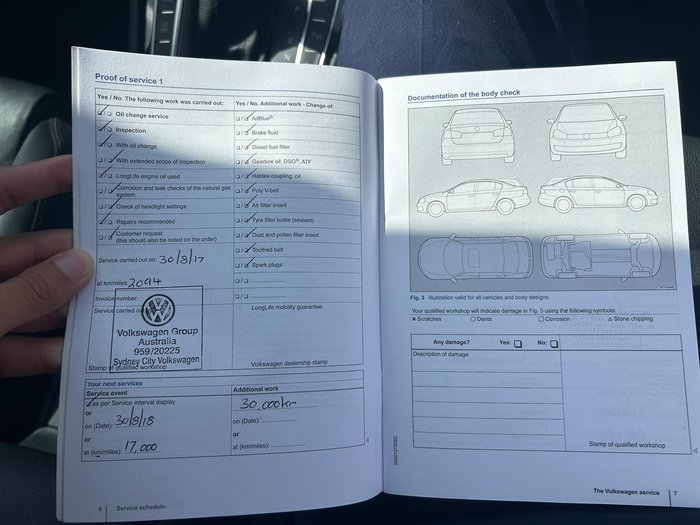 Proof of service 1
Yes / No. The following work was carried out:
Oil change service
Inspection
With oil change
With extended scope of inspection
LongLife engine oil used
Corrosion and leak checks of the natural gas
system
Check of headlight settings
Repairs recommended
Customer request
(this should also be noted on the order)
Service carried out on: 30/8/17
at km/miles: 2094
Invoice number:
Service carried out
Volkswagen Group
Australia
959/20225
Sydney City Volkswagen
Stamp of qualified workshop
Yes / No. Additional work - Change of:
AdBlue®
Brake fluid
Diesel fuel filter
Gearbox oil: DSG®, ATF
Haldex coupling: oil
Poly V-belt
Air filter insert
Tyre filler bottle (sealant)
Dust and pollen filter insert
Toothed belt
Spark plugs
LongLife mobility guarantee:
Volkswagen dealership stamp
Your next services
Service event
as per Service interval display
or
on (Date): 30/8/18
or
at (km/miles): 17,000
Additional work
30,000km
on (Date):
or
at (km/miles):
6 Service schedule
Documentation of the body check
Fig. 3 Illustration valid for all vehicles and body designs.
Your qualified workshop will indicate damage in Fig. 3 using the following symbols:
× Scratches ○ Dents □ Corrosion △ Stone chipping
Any damage? Yes: No:
Description of damage:
Stamp of qualified workshop
The Volkswagen service 7